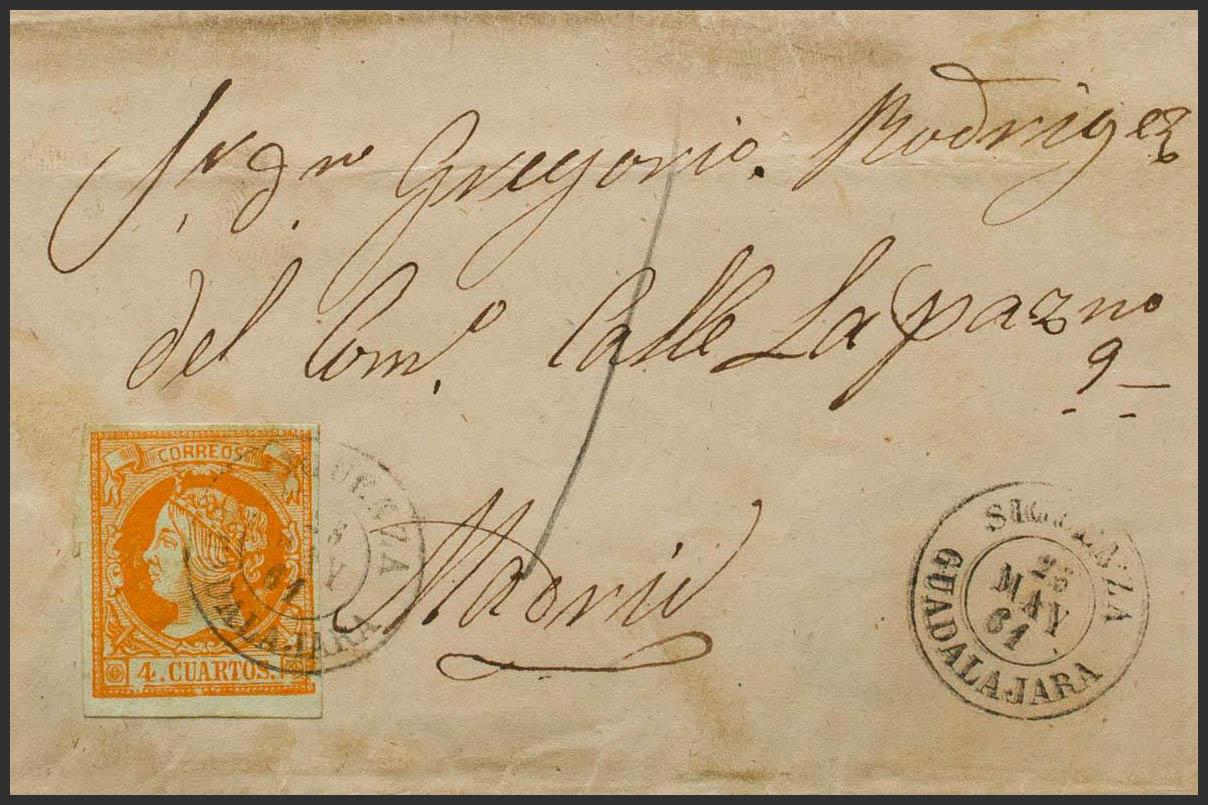 Sr. dn. Gregorio. Rodrigez
del Como. Calle La paz no
9
Madrid
CORREOS
4. CUARTOS.
GUADALAJARA
61
SIGUENZA
25
MAY
61
GUADALAJARA